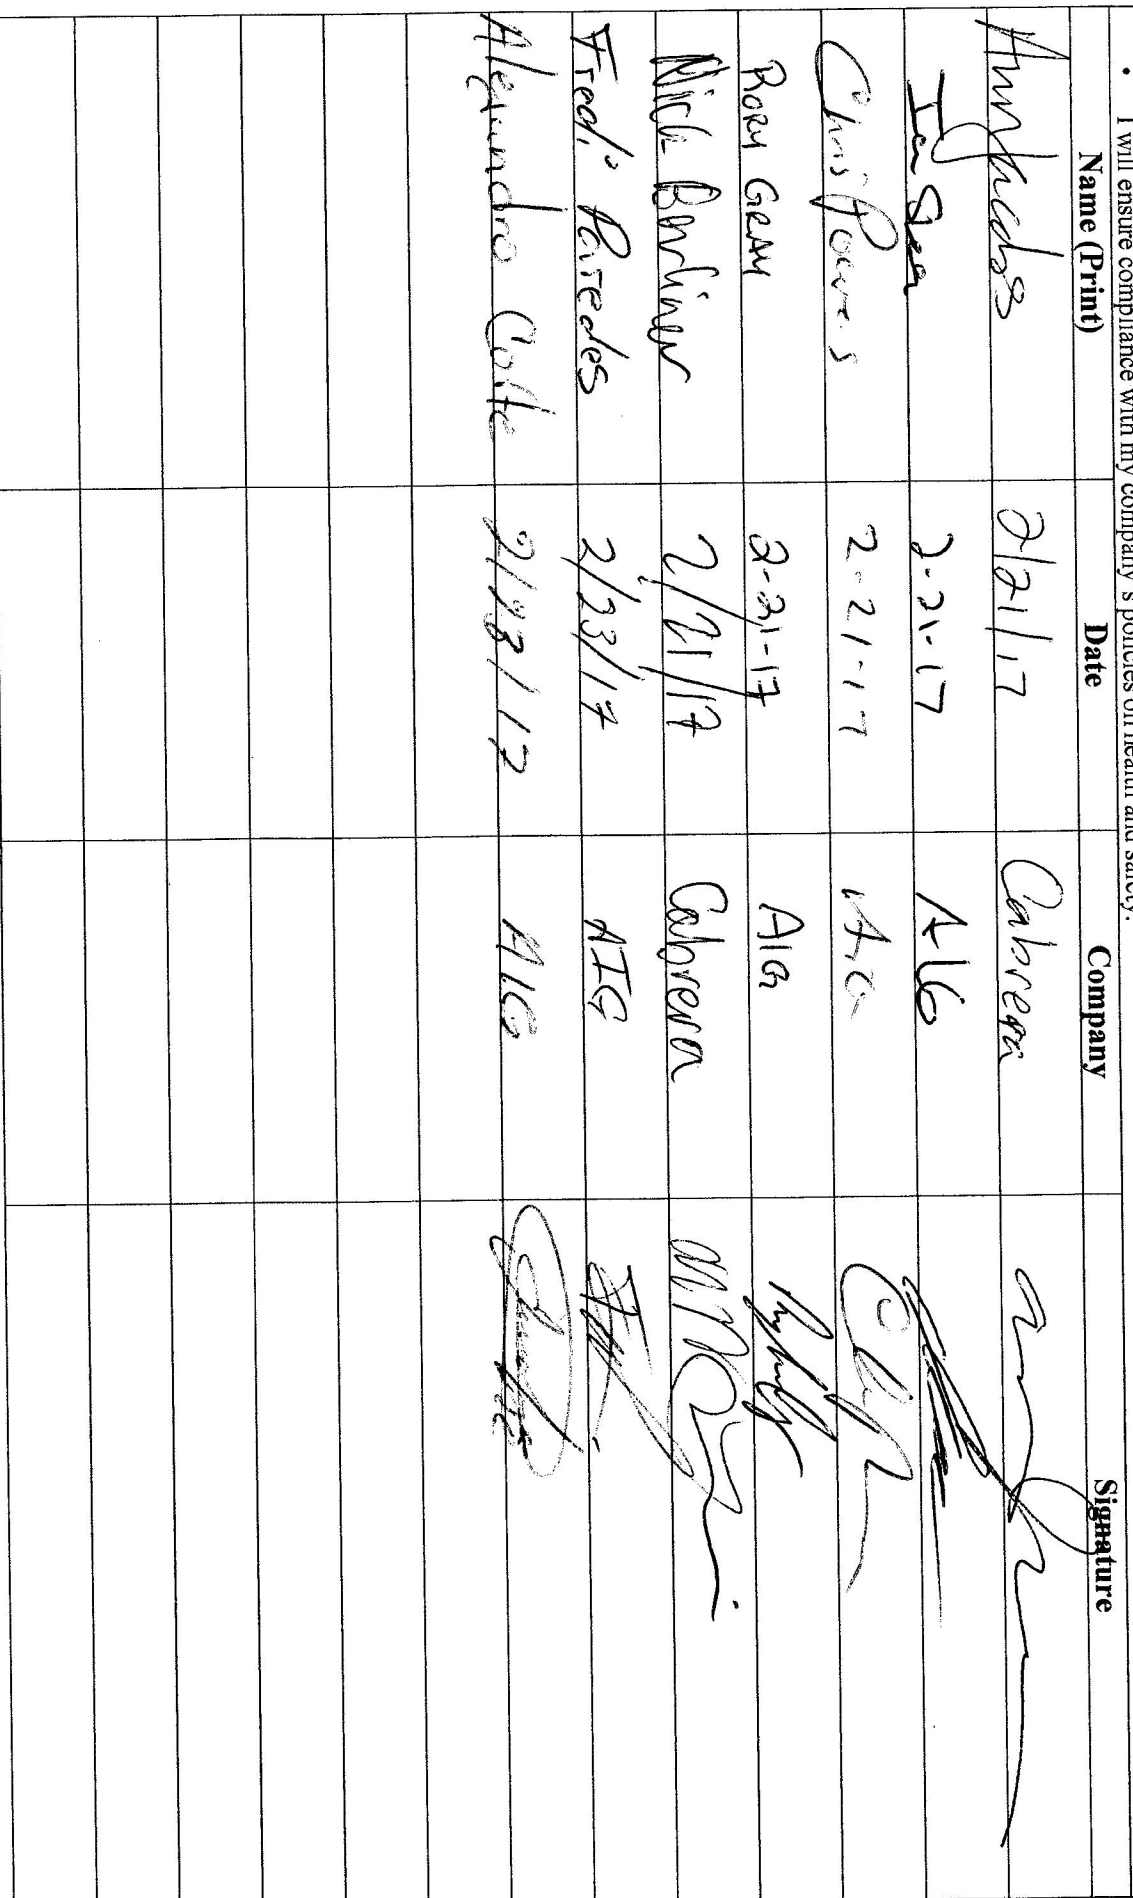 • I will ensure compliance with my company's policies on health and safety.
Name (Print) Date Company Signature
2/21/17 Cabrera
Ian 2-21-17 AIG
Chris Powers 2-21-17 AIG
Rory GRAY 2-21-17 AIG
Nick Berliner 2/21/17 Cabrera
Fredi Paredes 2/23/17 AIG
Alejandro 2/23/17 AIG